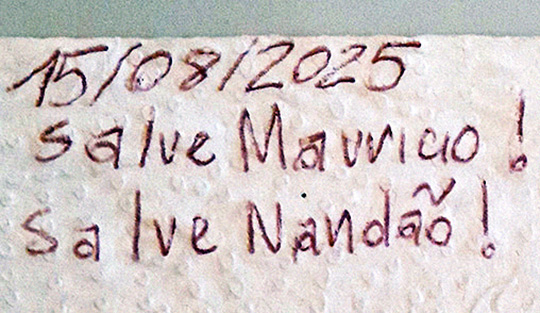 15/08/2025
Salve Mauricio!
Salve Nandão!